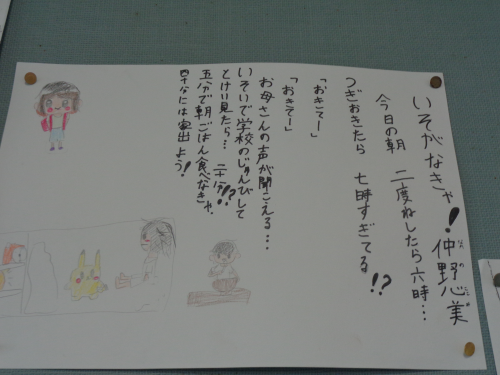 いそがなきゃ！仲野心美
今日の朝　二度ねしたら六時…
つぎおきたら　七時すぎてる⁉
「おきてー」
「おきてー」
お母さんの声が聞こえる…
いそいで学校のじゅんびして
とけい見たら…　二十分⁉
五分で朝ごはん食べなきゃ、
四十なには家出よう！